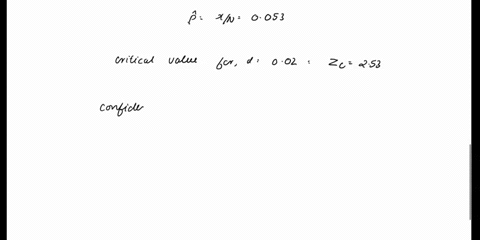 p̂ = x/N = 0.053
critical value for, α = 0.02 = Zc = 2.53
confide